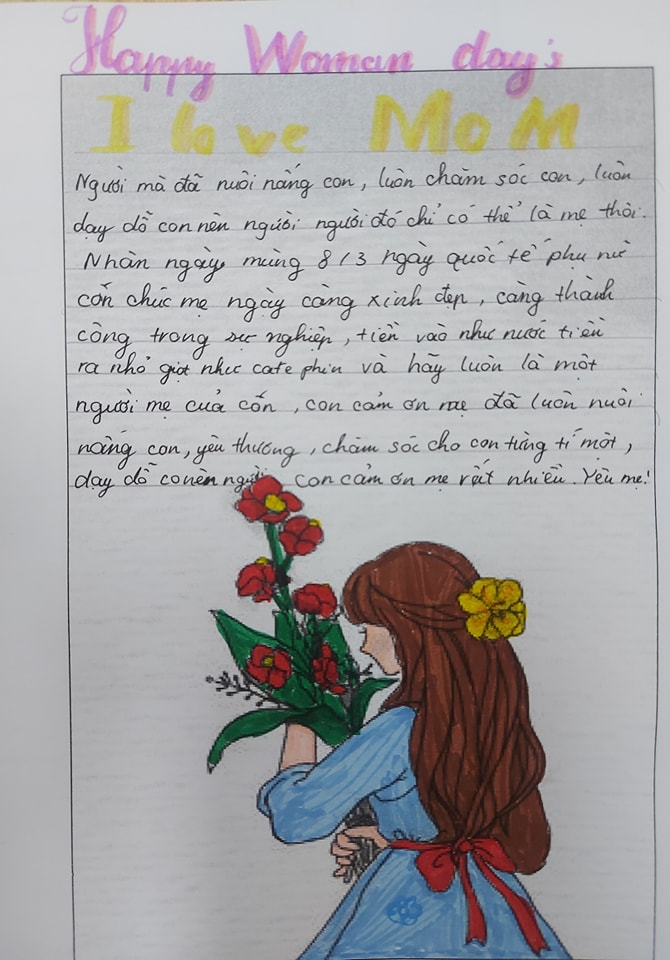 Happy Woman day's
I love MoM
Người mà đã nuôi nấng con, luôn chăm sóc con, luôn
dạy dỗ con nên người người đó chỉ có thể là mẹ thôi.
Nhân ngày mừng 8/3 ngày quốc tế phụ nữ
cốn chúc mẹ ngày càng xinh đẹp, càng thành
công trong sự nghiệp, tiền vào như nước tiền
ra nhỏ giọt như cafe phin và hãy luôn là một
người mẹ của cốn, con cảm ơn mẹ đã luôn nuôi
nấng con, yêu thương, chăm sóc cho con từng tí một,
dạy dỗ con nên người con cảm ơn mẹ rất nhiều. Yêu mẹ!